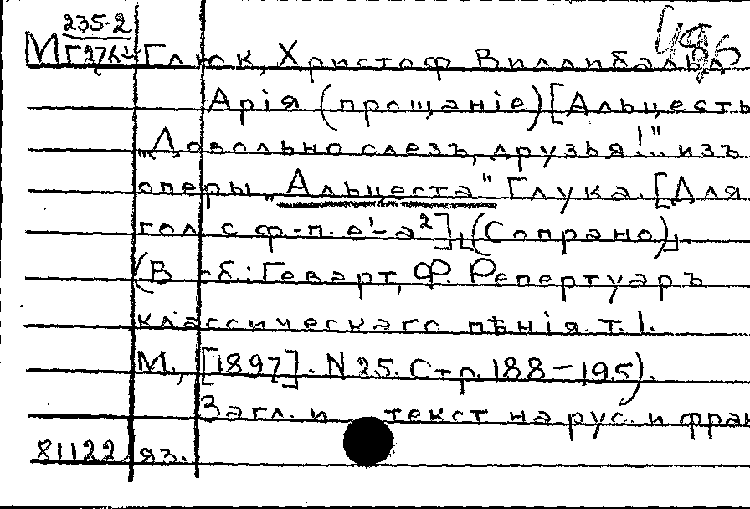 235-2
М Глюк, Христоф Виллибальд
Арія (прощаніе) [Альцесты
„Довольно слезъ, друзья!“ изъ
оперы „Альцеста“ Глука. [Для
гол. с ф-п. e¹-a²]. (Сопрано).
(В сб: Геварт, Ф. Репертуаръ
классическаго пѣнія. т. 1.
М., [1897]. N 25. Стр. 188-195).
Загл. и текст на рус. и фран
81122 яз.